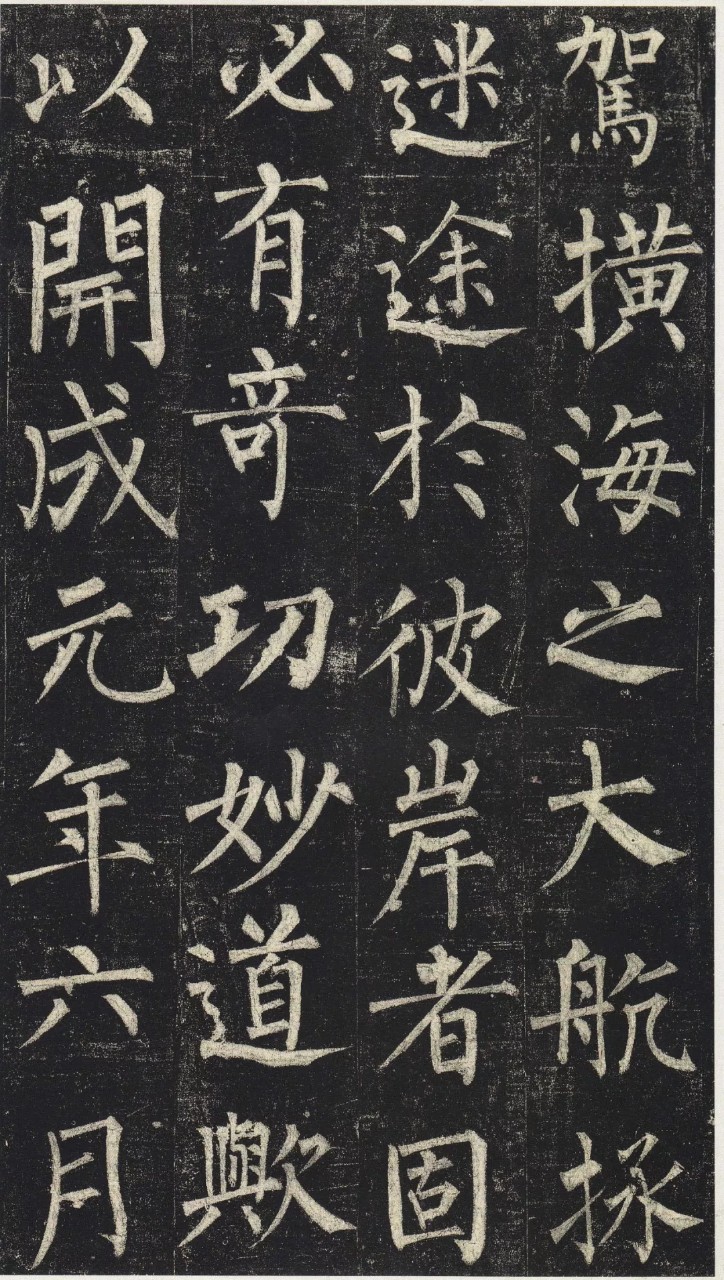 駕撗海之大航拯
迷途於彼岸者固
必有竒功妙道歟
以開成元年六月